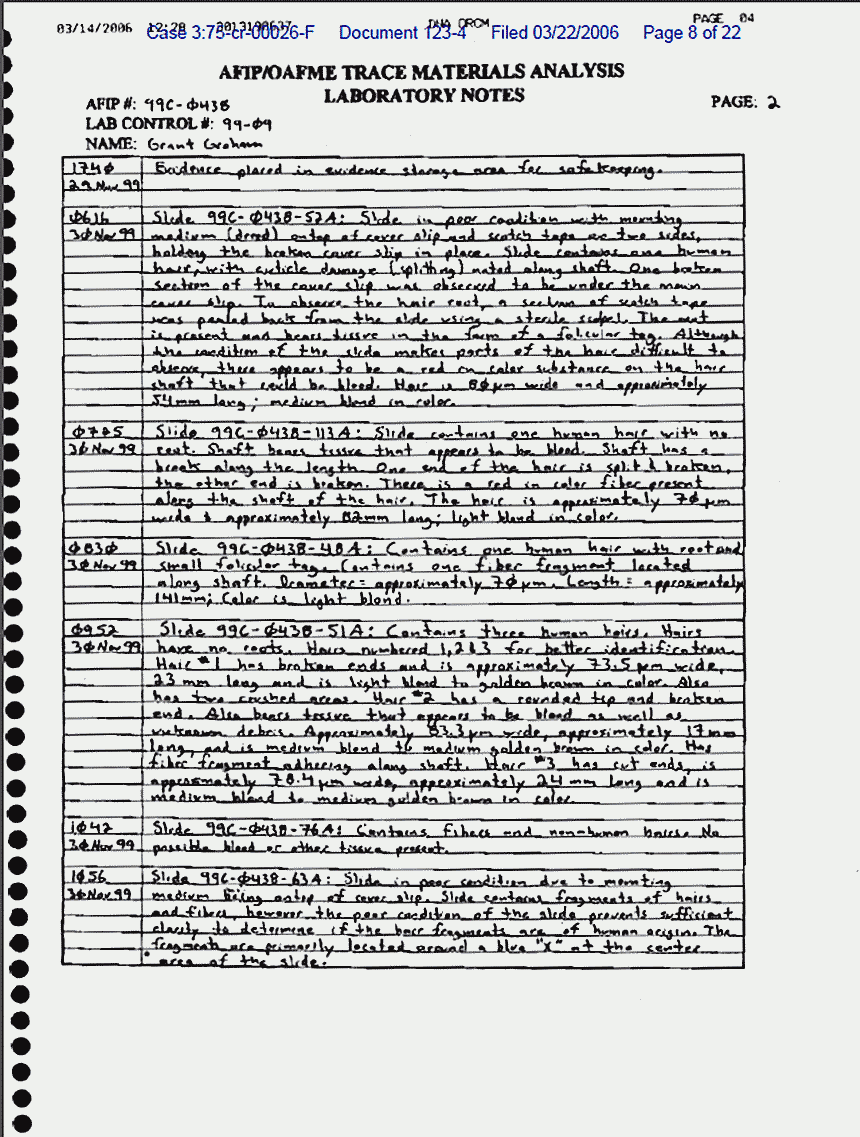 03/14/2006 12:20 2013190627 DNA ORCM PAGE 04
Case 3:75-cr-00026-F Document 123-4 Filed 03/22/2006 Page 8 of 22
AFIP/OAFME TRACE MATERIALS ANALYSIS
LABORATORY NOTES
AFIP #: 99C-Ø438
PAGE: 2
LAB CONTROL #: 99-Ø9
NAME: Grant Graham
174Ø Evidence placed in evidence storage area for safekeeping.
29 Nov 99
Ø616 Slide 99C-Ø438-52A: Slide in poor condition with mounting
3Ø Nov 99 medium (dried) ontop of cover slip and scotch tape on two sides,
holding the broken cover slip in place. Slide contains one human
hair, with cuticle damage (splitting) noted along shaft. One broken
section of the cover slip was observed to be under the main
cover slip. To observe the hair root, a section of scotch tape
was pealed back from the slide using a sterile scalpel. The root
is present and bears tissue in the form of a folicular tag. Although
the condition of the slide makes parts of the hair difficult to
observe, there appears to be a red in color substance on the hair
shaft that could be blood. Hair is 8Ø µm wide and approximately
54mm long; medium blond in color.
Ø745 Slide 99C-Ø438-113A: Slide contains one human hair with no
3Ø Nov 99 root. Shaft bears tissue that appears to be blood. Shaft has a
break along the length. One end of the hair is split & broken,
the other end is broken. There is a red in color fiber present
along the shaft of the hair. The hair is approximately 7Ø µm
wide & approximately 82mm long; light blond in color.
Ø83Ø Slide 99C-Ø438-48A: Contains one human hair with root and
3Ø Nov 99 small folicular tag. Contains one fiber fragment located
along shaft. Diameter = approximately 7Ø µm. Length = approximately
141mm; Color is light blond.
Ø952 Slide 99C-Ø438-51A: Contains three human hairs. Hairs
3Ø Nov 99 have no roots. Hairs numbered 1,2&3 for better identification.
Hair #1 has broken ends and is approximately 73.5 µm wide,
23 mm long and is light blond to golden brown in color. Also
has two crushed areas. Hair #2 has a rounded tip and broken
end. Also bears tissue that appears to be blood as well as
unknown debris. Approximately 83.3 µm wide, approximately 17mm
long, and is medium blond to medium golden brown in color. Has
fiber fragment adhering along shaft. Hair #3 has cut ends, is
approximately 78.4 µm wide, approximately 24 mm long and is
medium blond to medium golden brown in color.
1Ø42 Slide 99C-Ø438-76A: Contains fibers and non-human hairs. No
3Ø Nov 99 possible blood or other tissue present.
1Ø56 Slide 99C-Ø438-63A: Slide in poor condition due to mounting
3Ø Nov 99 medium being ontop of cover slip. Slide contains fragments of hairs
and fibers, however the poor condition of the slide prevents sufficient
clarity to determine if the hair fragments are of human origin. The
fragments are primarily located around a blue "X" at the center
area of the slide.